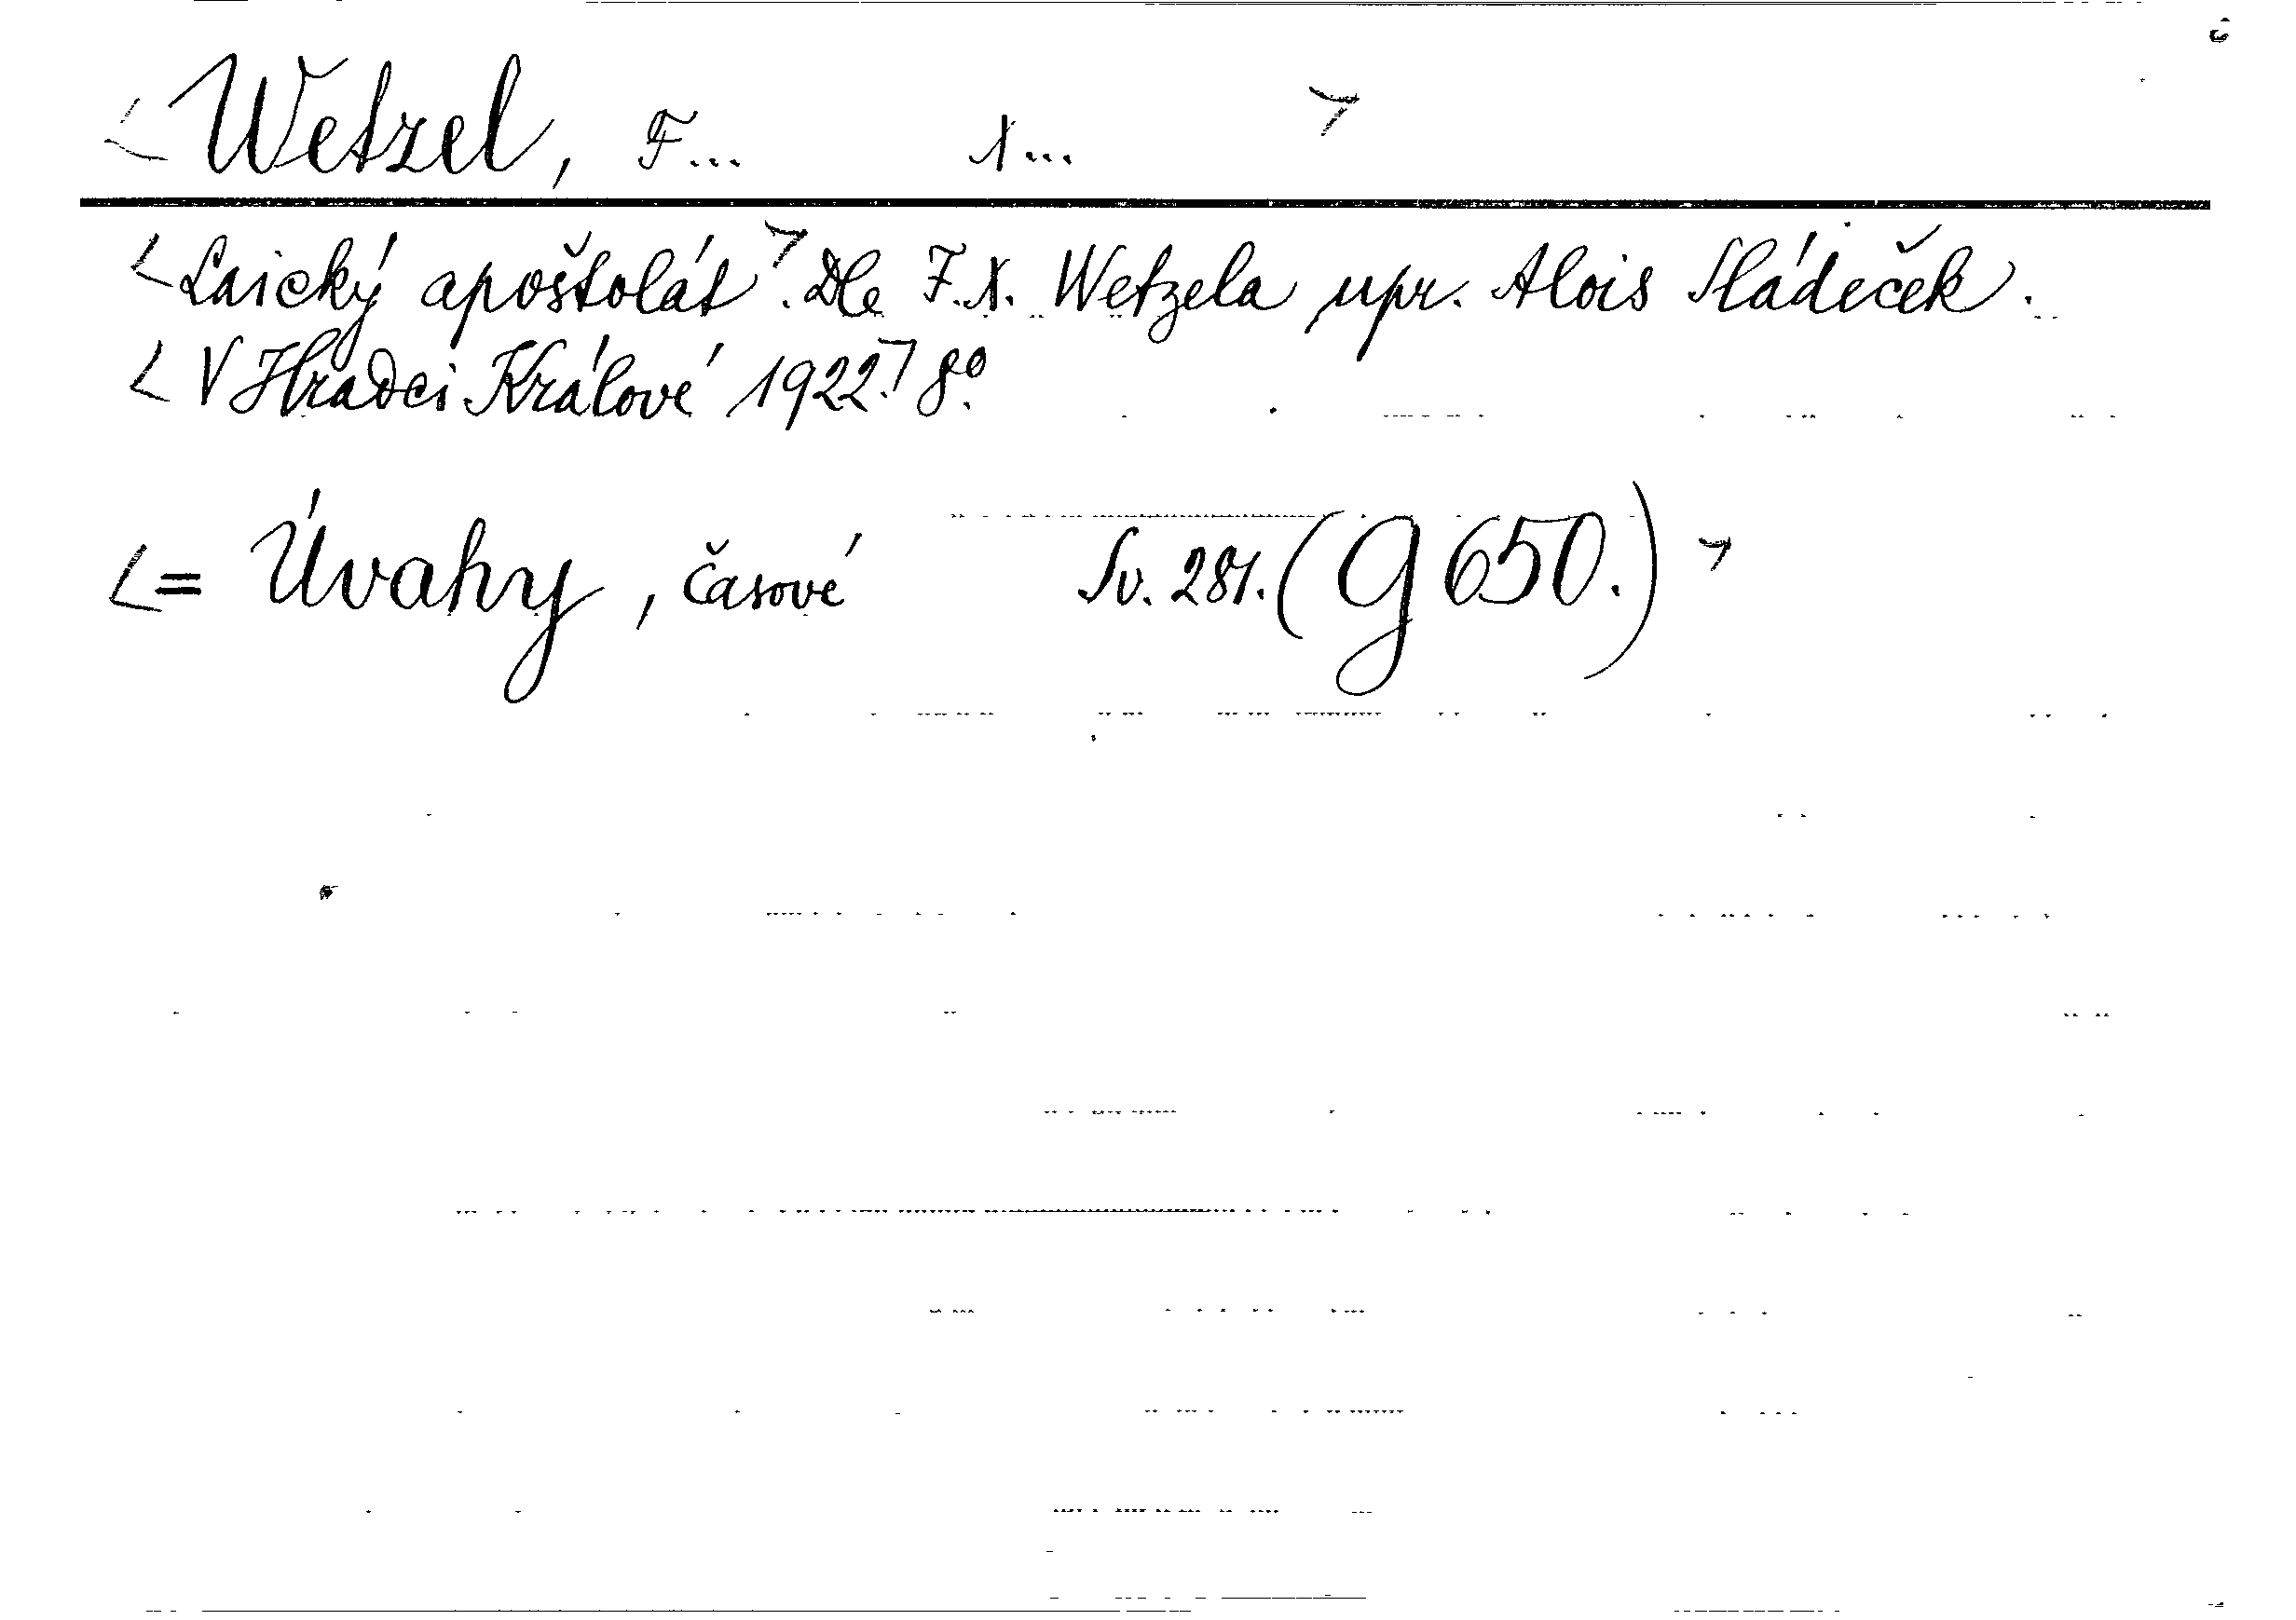 <Wetzel, F... X...>
<Laický apoštolát>. Dle F.X. Wetzela upr. Alois Sládeček.
<V Hradci Králové 1922.> 8º.
<= Úvahy, časové Sv. 281. (g 650.)>